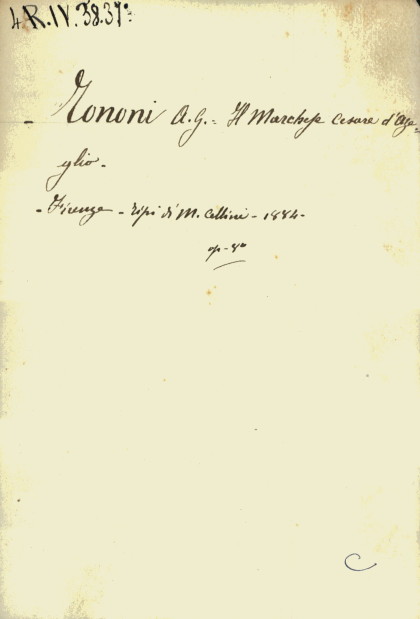 4 R.IV.38.37º
- Tononi A.G.= Il Marchese Cesare d'Aze=
glio -
- Firenze - tipi di M. Cellini - 1884 -
op - 8º